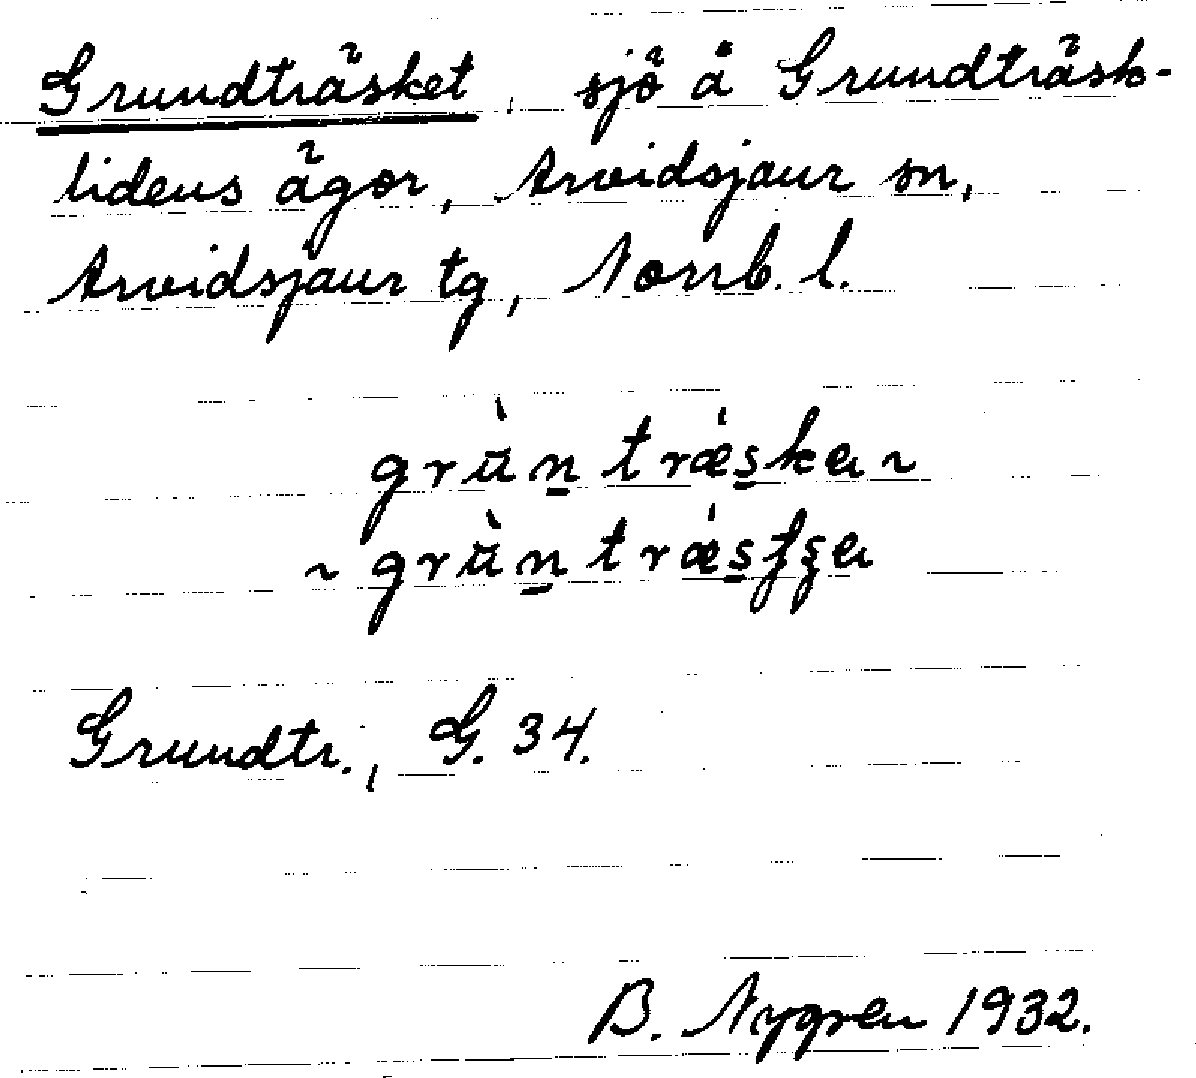 Grundträsket, sjö å Grundträsk-
lidens ägor, Arvidsjaur sn,
Arvidsjaur tg, Norrb. l.
grùn̠ trǽs̠ka ~
~ grùn̠ trǽs̠ʄʂa
Grundtr., G. 34.
B. Nygren 1932.